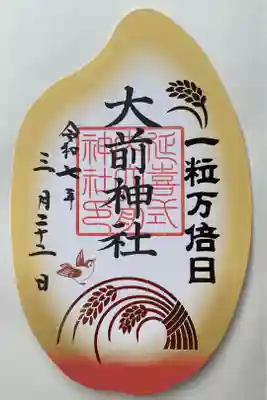 一粒万倍日
大前神社
延喜式
神社印
令和七年
三月二十二日